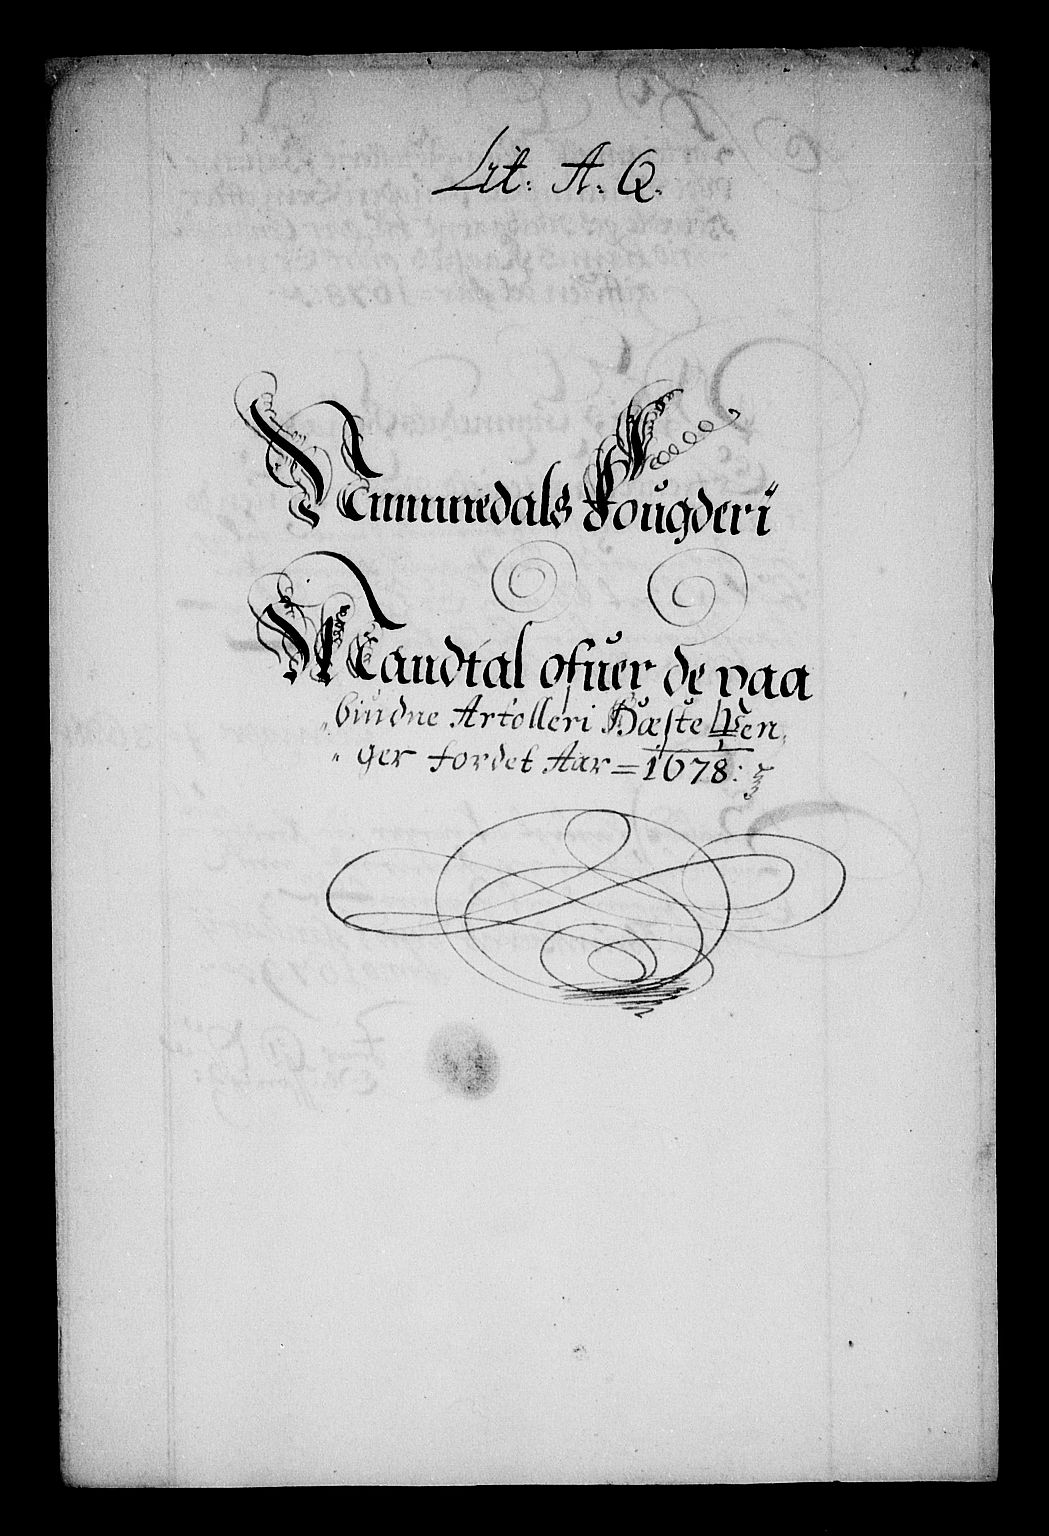 Lit: A: Q.
Nummedals Fougderi
Mandtal ofuer de paa
biudne Artolleri Hæste Pen,
ger for det Aar = 1678: